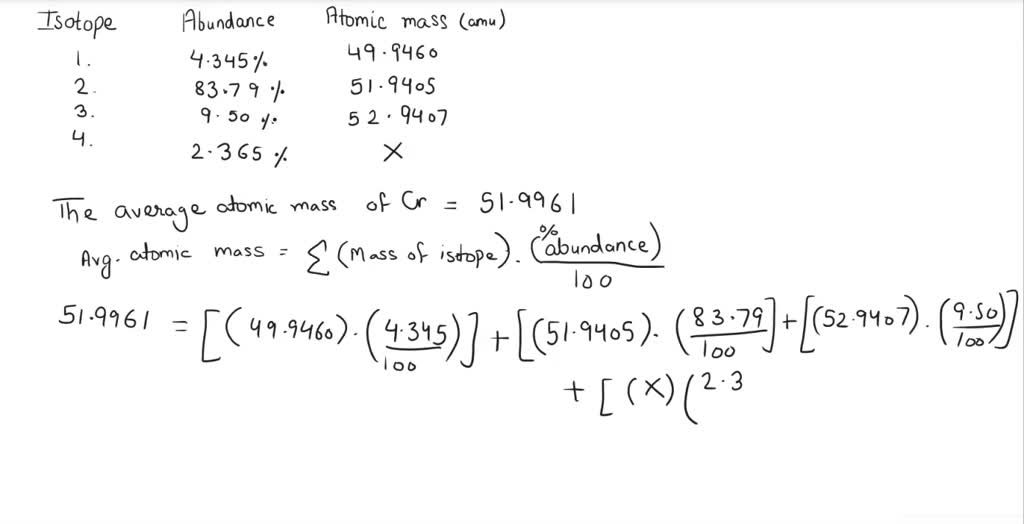 Isotope Abundance Atomic mass (amu)
1. 4.345% 49.9460
2. 83.79% 51.9405
3. 9.50% 52.9407
4. 2.365% X
The average atomic mass of Cr = 51.9961
Avg. atomic mass = Σ (Mass of istope). (% abundance)/100
51.9961 = [(49.9460).(4.345/100)] + [(51.9405).(83.79/100] + [(52.9407).(9.50/100)]
+ [(X)(2.3